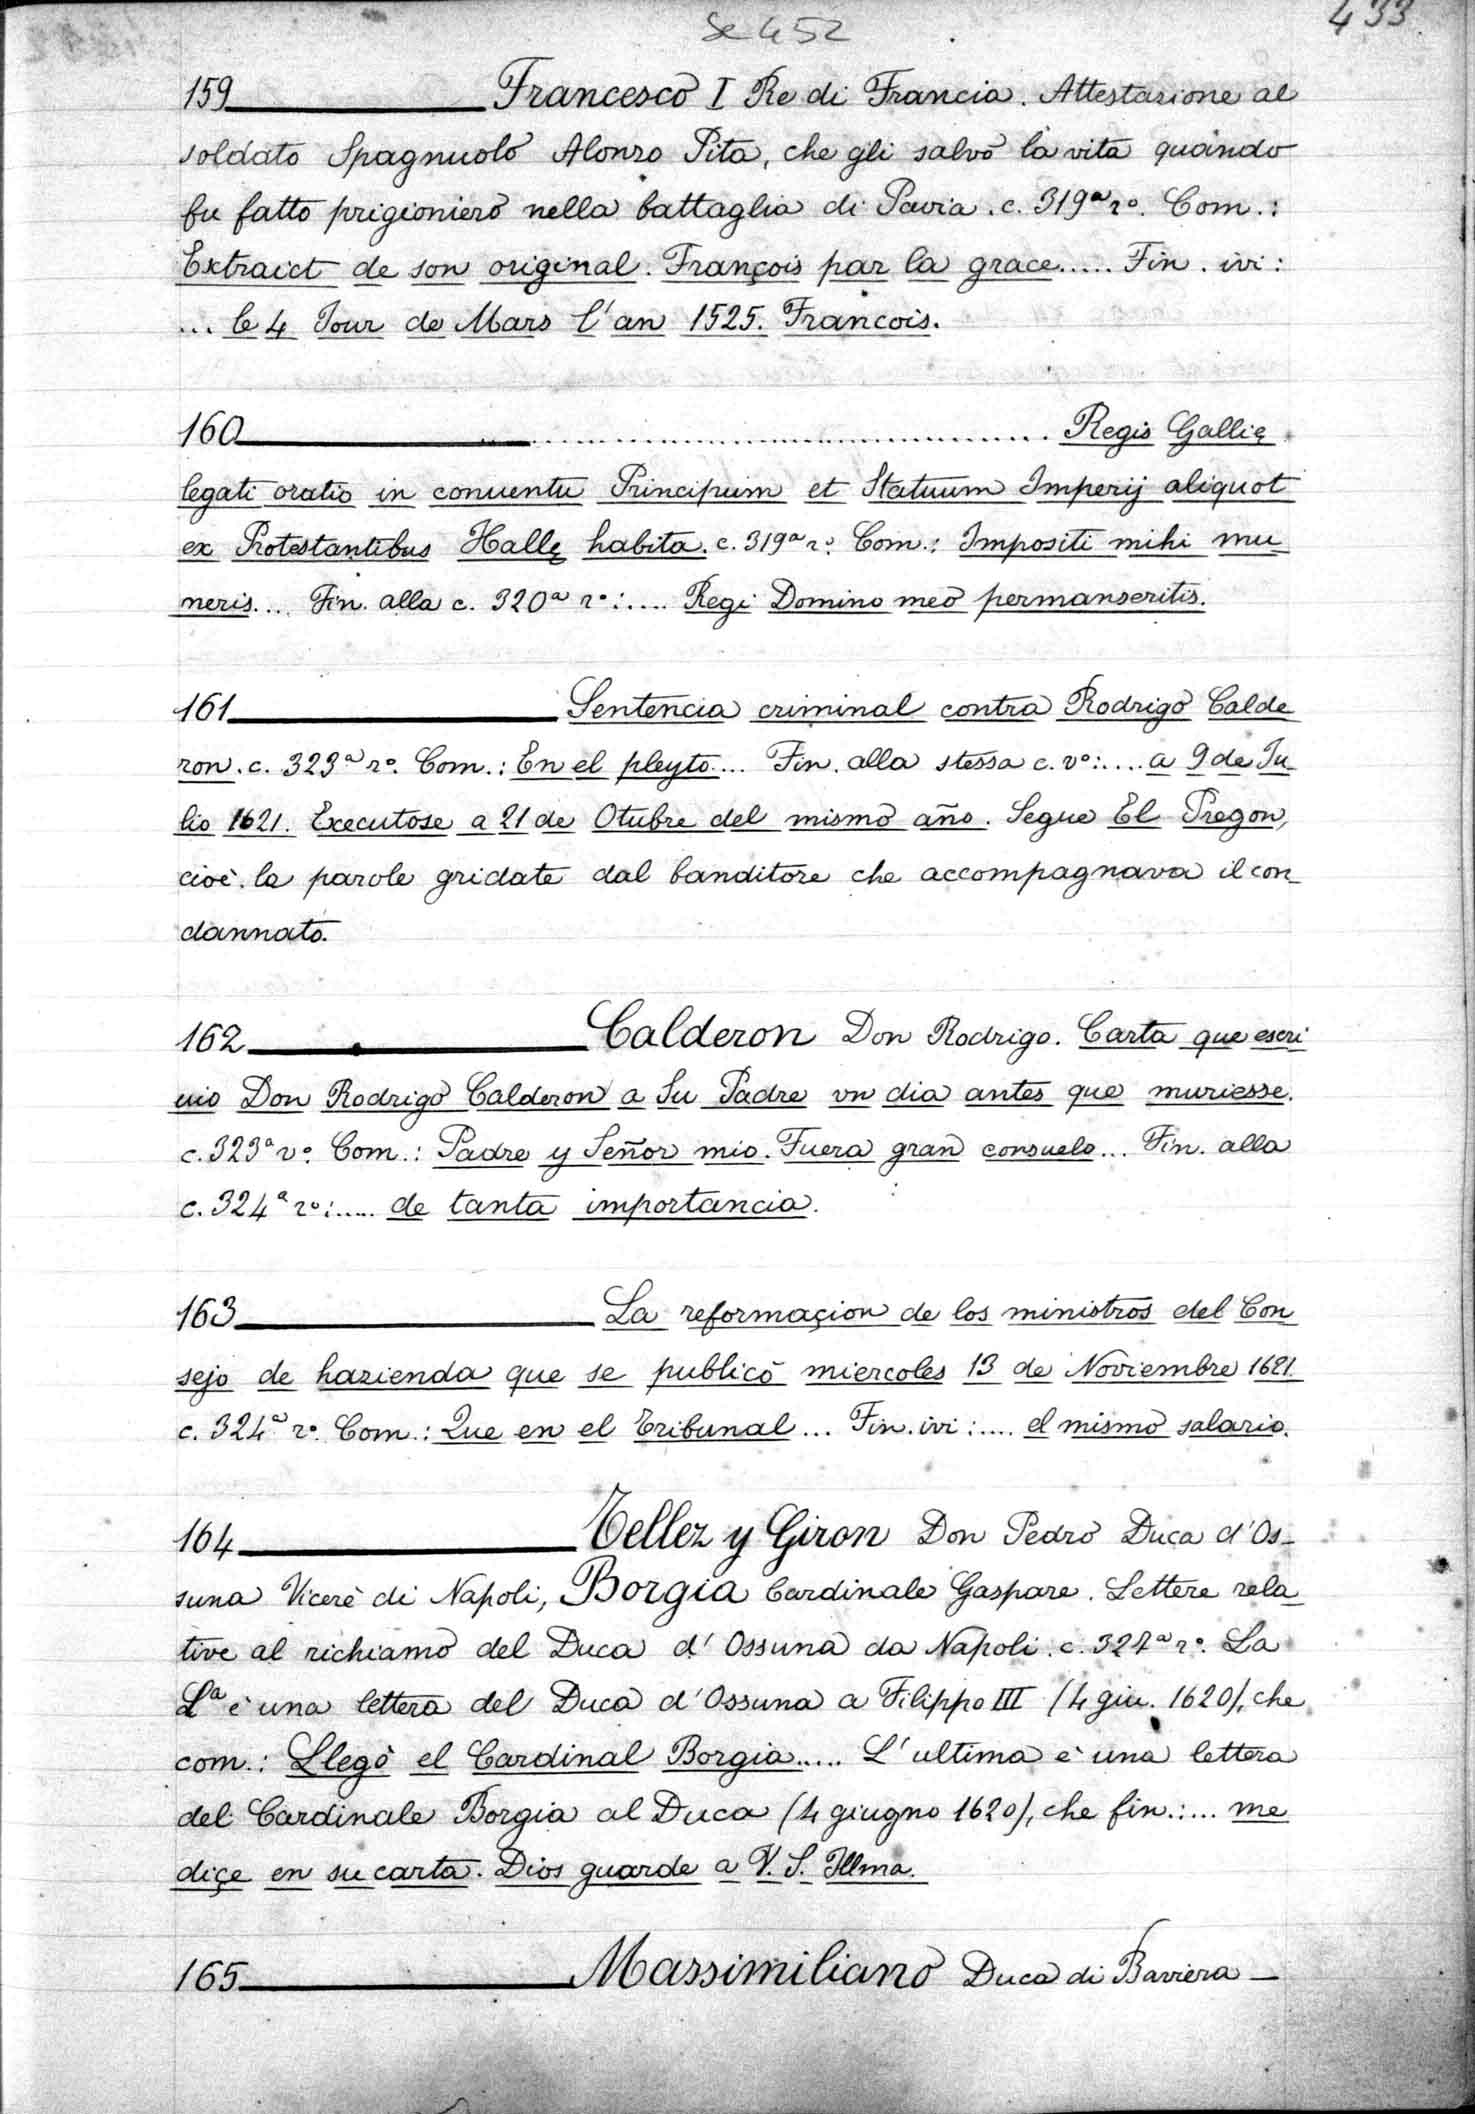 Se 452
433
159 Francesco I Re di Francia. Attestazione al
soldato Spagnuolo Alonzo Pita, che gli salvò la vita quando
fu fatto prigioniero nella battaglia di Pavia. c. 319ª rº. Com.:
Extraict de son original. François par la grace..... Fin. ivi:
... le 4 Jour de Mars l'an 1525. Francois.
160 ........................................ Regis Gallię
legati oratio in conuentu Principum et Statuum Imperij aliquot
ex Protestantibus Hallę habita. c. 319ª rº. Com.: Impositi mihi mu-
neris.... Fin. alla c. 320ª rº:.... Regi Domino meo permanseritis.
161 Sentencia criminal contra Rodrigo Calde
ron. c. 323ª rº. Com.: En el pleyto.... Fin. alla stessa c. vº:.... a 9 de Ju-
lio 1621. Executose a 21 de Otubre del mismo año. Segue El Pregon,
cioè le parole gridate dal banditore che accompagnava il con-
dannato.
162 Calderon Don Rodrigo. Carta que escri
uio Don Rodrigo Calderon a Su Padre vn dia antes que muriesse.
c. 323ª vº. Com.: Padre y Señor mio. Fuera gran consuelo... Fin. alla
c. 324ª rº:..... de tanta importancia.
163 La reformaçion de los ministros del Con
sejo de hazienda que se publicò miercoles 13 de Noviembre 1621.
c. 324ª rº. Com.: Que en el tribunal... Fin. ivi:.... el mismo salario.
164 Tellez y Giron Don Pedro Duca d'Os-
suna Vicerè di Napoli, Borgia Cardinale Gaspare. Lettere rela-
tive al richiamo del Duca d'Ossuna da Napoli. c. 324ª rº. La
Lª è una lettera del Duca d'Ossuna a Filippo III (4 giu. 1620), che
com.: Llegò el Cardinal Borgia..... L'ultima è una lettera
del Cardinale Borgia al Duca (4 giugno 1620), che fin.:... me
diçe en su carta. Dios guarde a V. S. Illma.
165 Massimiliano Duca di Baviera-